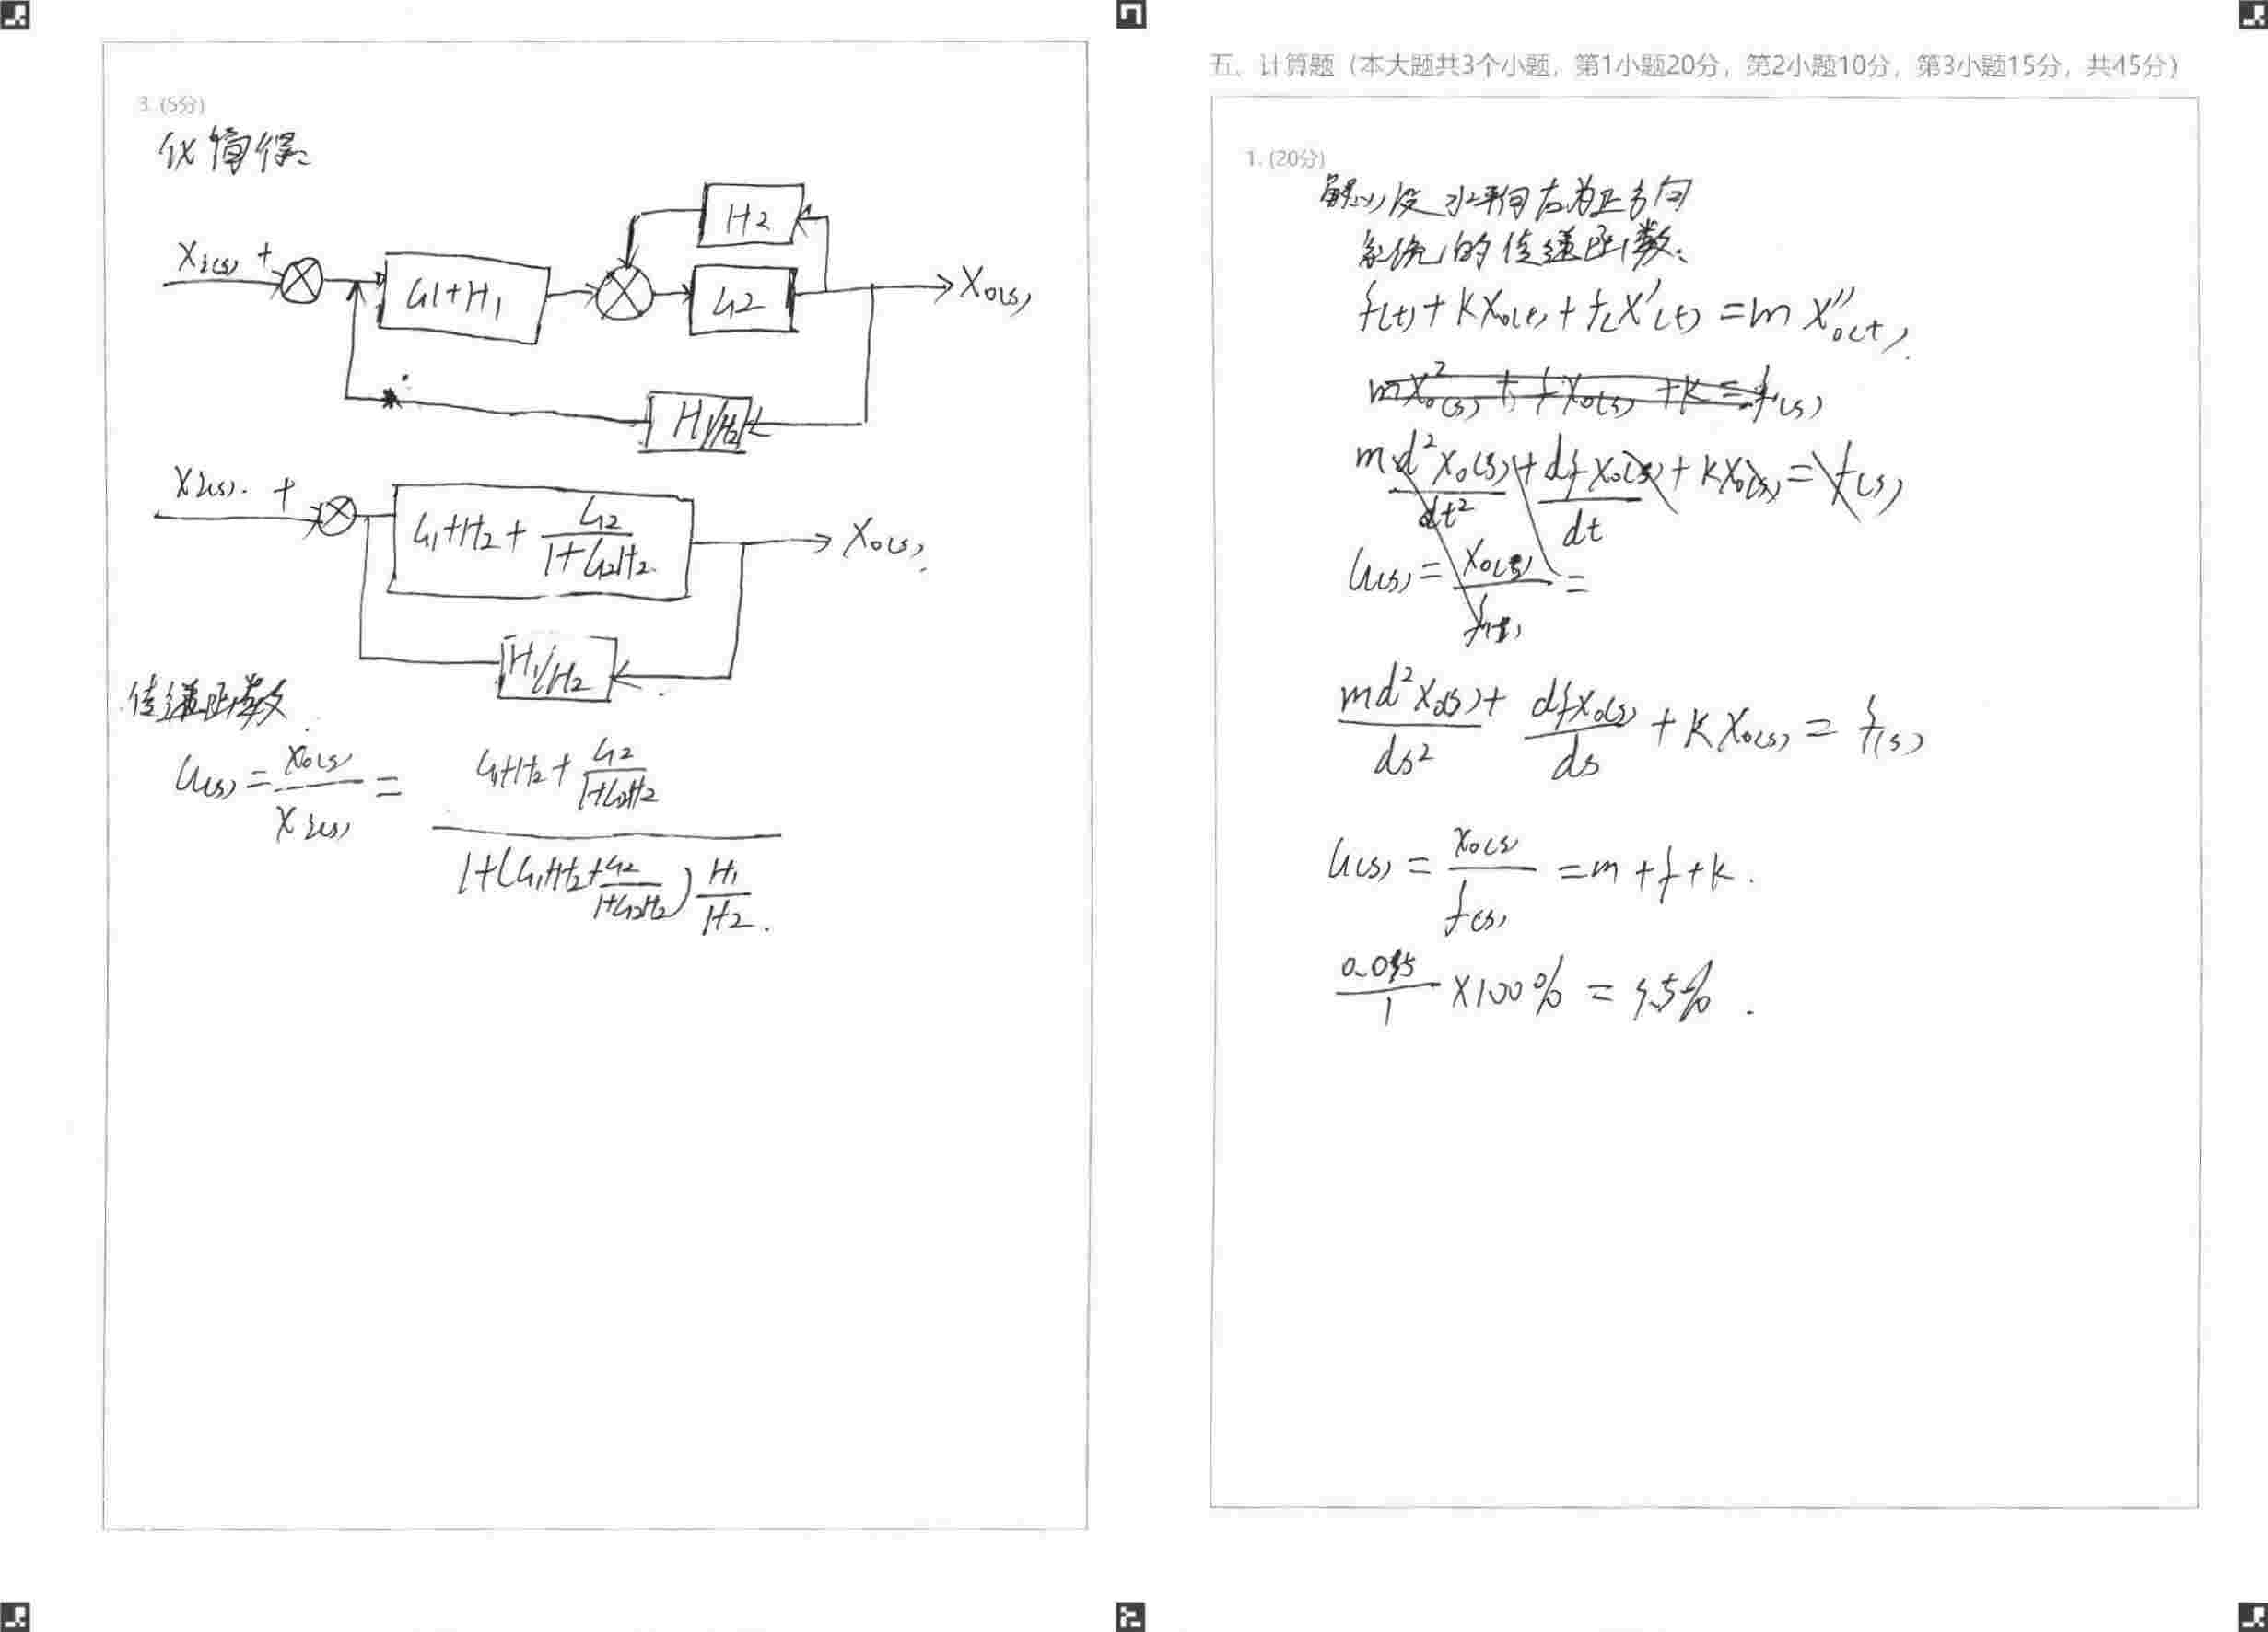 3. (5分)
化简得:
H2
Xi(s) +
G1+H1
G2
Xo(s)
H1/H2
Xi(s). +
G1+H2+ G2/(1+G2H2.)
Xo(s).
H1/H2
传递函数
G(s) = Xo(s)/Xi(s) = (G1+H2+ G2/(1+G2H2))/(1+(G1+H2+ G2/(1+G2H2)) H1/H2.)
五、计算题（本大题共3个小题，第1小题20分，第2小题10分，第3小题15分，共45分）
1. (20分)
解:(1)设水平向右为正方向
系统的传递函数:
f(t)+kXo(t)+fcX'(t)=mX''o(t).
mXo²(s) + fXo(s) +k=f(s)
md²Xo(s)/dt² + dfXo(s)/dt + kXo(s) = f(s)
G(s) = Xo(s)/f(s) =
md²Xo(s)/ds² + dfXo(s)/ds + kXo(s) = f(s)
G(s) = Xo(s)/f(s) = m+f+k.
0.095/1 ×100% = 9.5%.